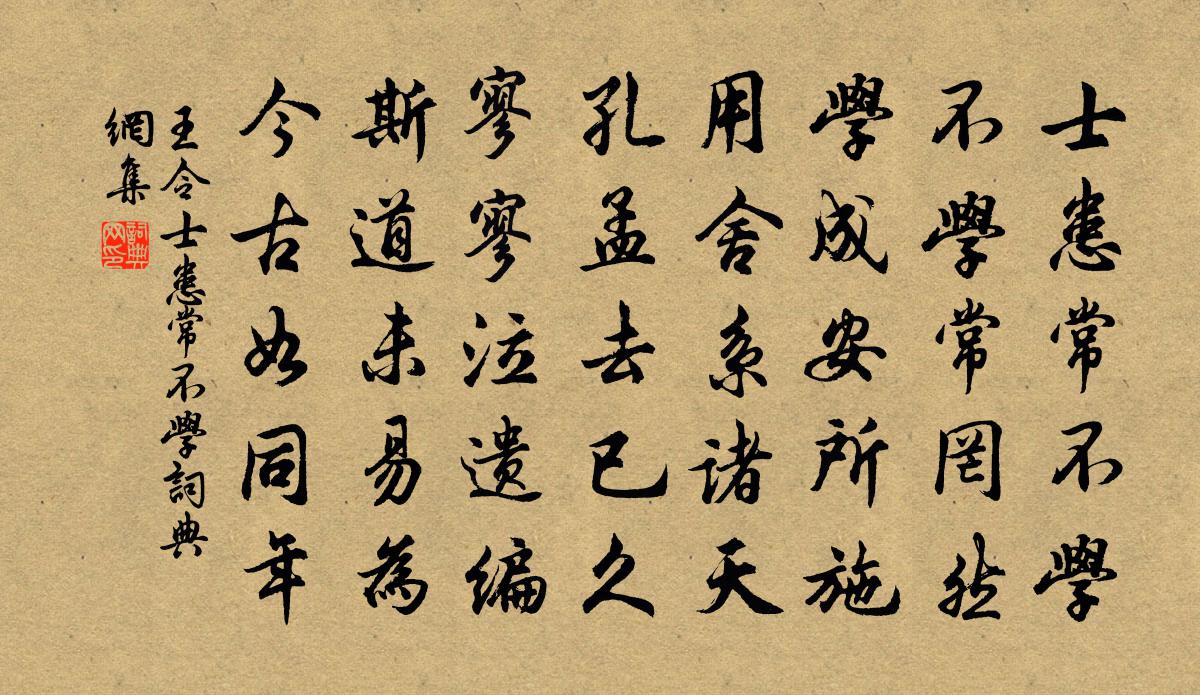 士患常不學
不學常罔然
學成安所施
用舍系諸天
孔孟去已久
寥寥泣遺編
斯道未易為
今古如同年
王令士患常不學詞典
網集
詞典
网印